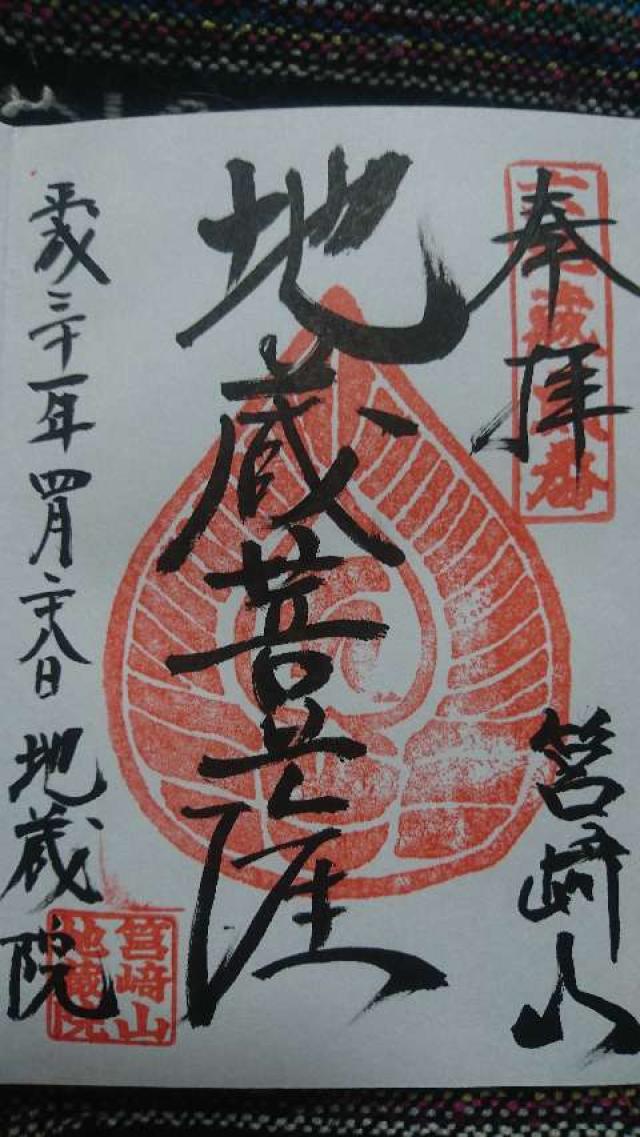 奉拝
筥崎山
地蔵菩薩
平成三十一年四月二十八日
地蔵院
筥崎山
地蔵院